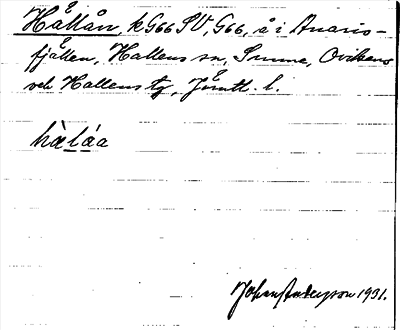 Hållån, k G66 SV, G66, å i Anaris-
fjällen, Hallens sn, Sunne, Ovikens
och Hallens tg, Jämtl. l.
hàláa
Johan Anderson 1931.